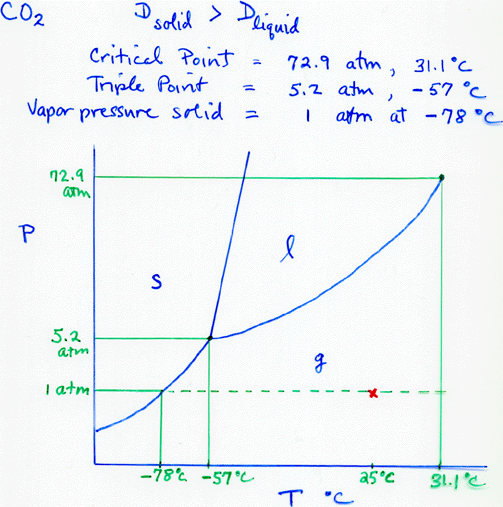 CO2 Dsolid > Dliquid
Critical Point = 72.9 atm, 31.1°C
Triple Point = 5.2 atm, -57 °C
Vapor pressure solid = 1 atm at -78 °C
72.9
atm
P
s
l
5.2
atm
g
1 atm
x
-78°C -57°C 25°C 31.1°C
T °C